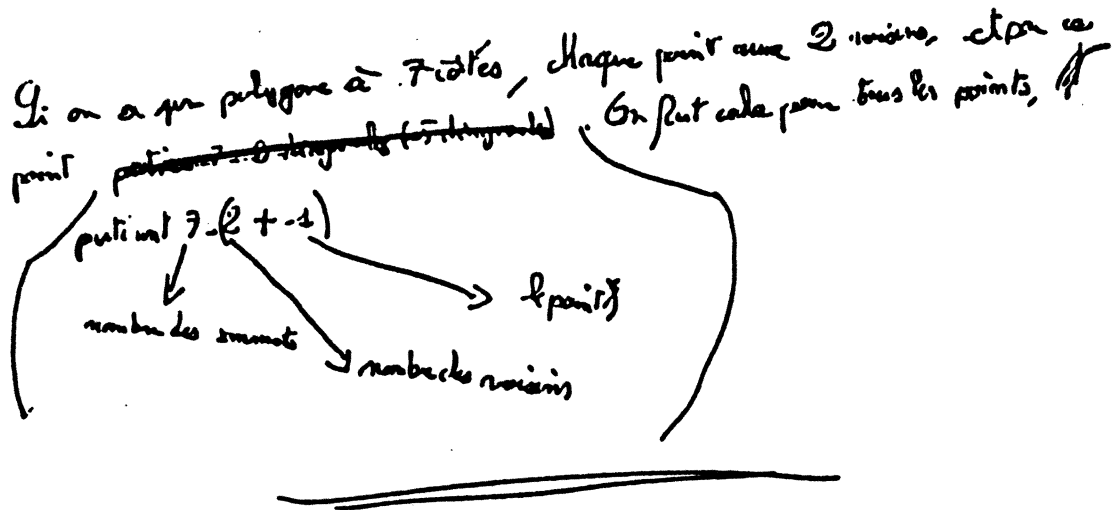 Si on a un polygone à 7 côtés, chaque point aura 2 voisins, et par ce
point . On fait cela pour tous les points,
partiront 7-(2 + 1)
le point
nombre des sommets
nombre des voisins